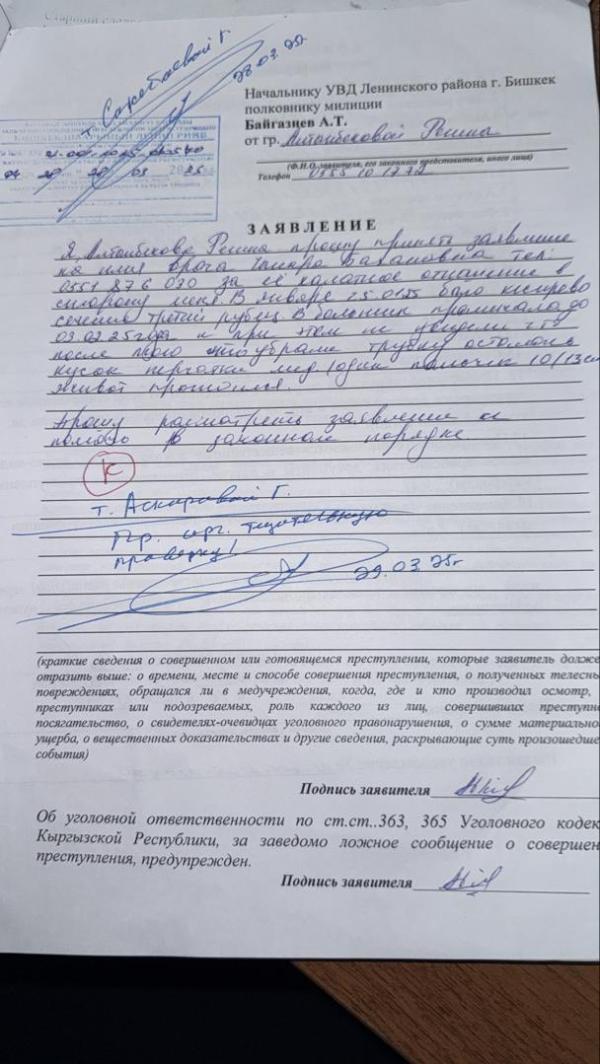 28.03.25г.
Начальнику УВД Ленинского района г. Бишкек
полковнику милиции
Байгазиев А.Т.
от гр.
(Ф.И.О. заявителя, его законного представителя, иного лица)
Телефон
ЗАЯВЛЕНИЕ
Я, прошу принять заявление
на имя врача тел:
0551 876 070 за её халатное отношение в
сторону меня. В январе 25.01.25 было кесарево
сечение третий рубец. В больнице пролежала до
03.02.25 года и при этом не увидели
после того что убрали трубку
кусок перчатки один пальчик 10/13см
живот
Прошу рассмотреть заявление и
в законном порядке.
К
т. Аскаровой Г.
Пр. орг. тщательную
проверку!
29.03.25г
(краткие сведения о совершенном или готовящемся преступлении, которые заявитель долже
отразить выше: о времени, месте и способе совершения преступления, о полученных телесны
повреждениях, обращался ли в медучреждения, когда, где и кто производил осмотр,
преступниках или подозреваемых, роль каждого из лиц, совершивших преступн
посягательство, о свидетелях-очевидцах уголовного правонарушения, о сумме материально
ущерба, о вещественных доказательствах и другие сведения, раскрывающие суть произошедше
события)
Подпись заявителя
Об уголовной ответственности по ст.ст..363, 365 Уголовного кодек
Кыргызской Республики, за заведомо ложное сообщение о совершен
преступления, предупрежден.
Подпись заявителя